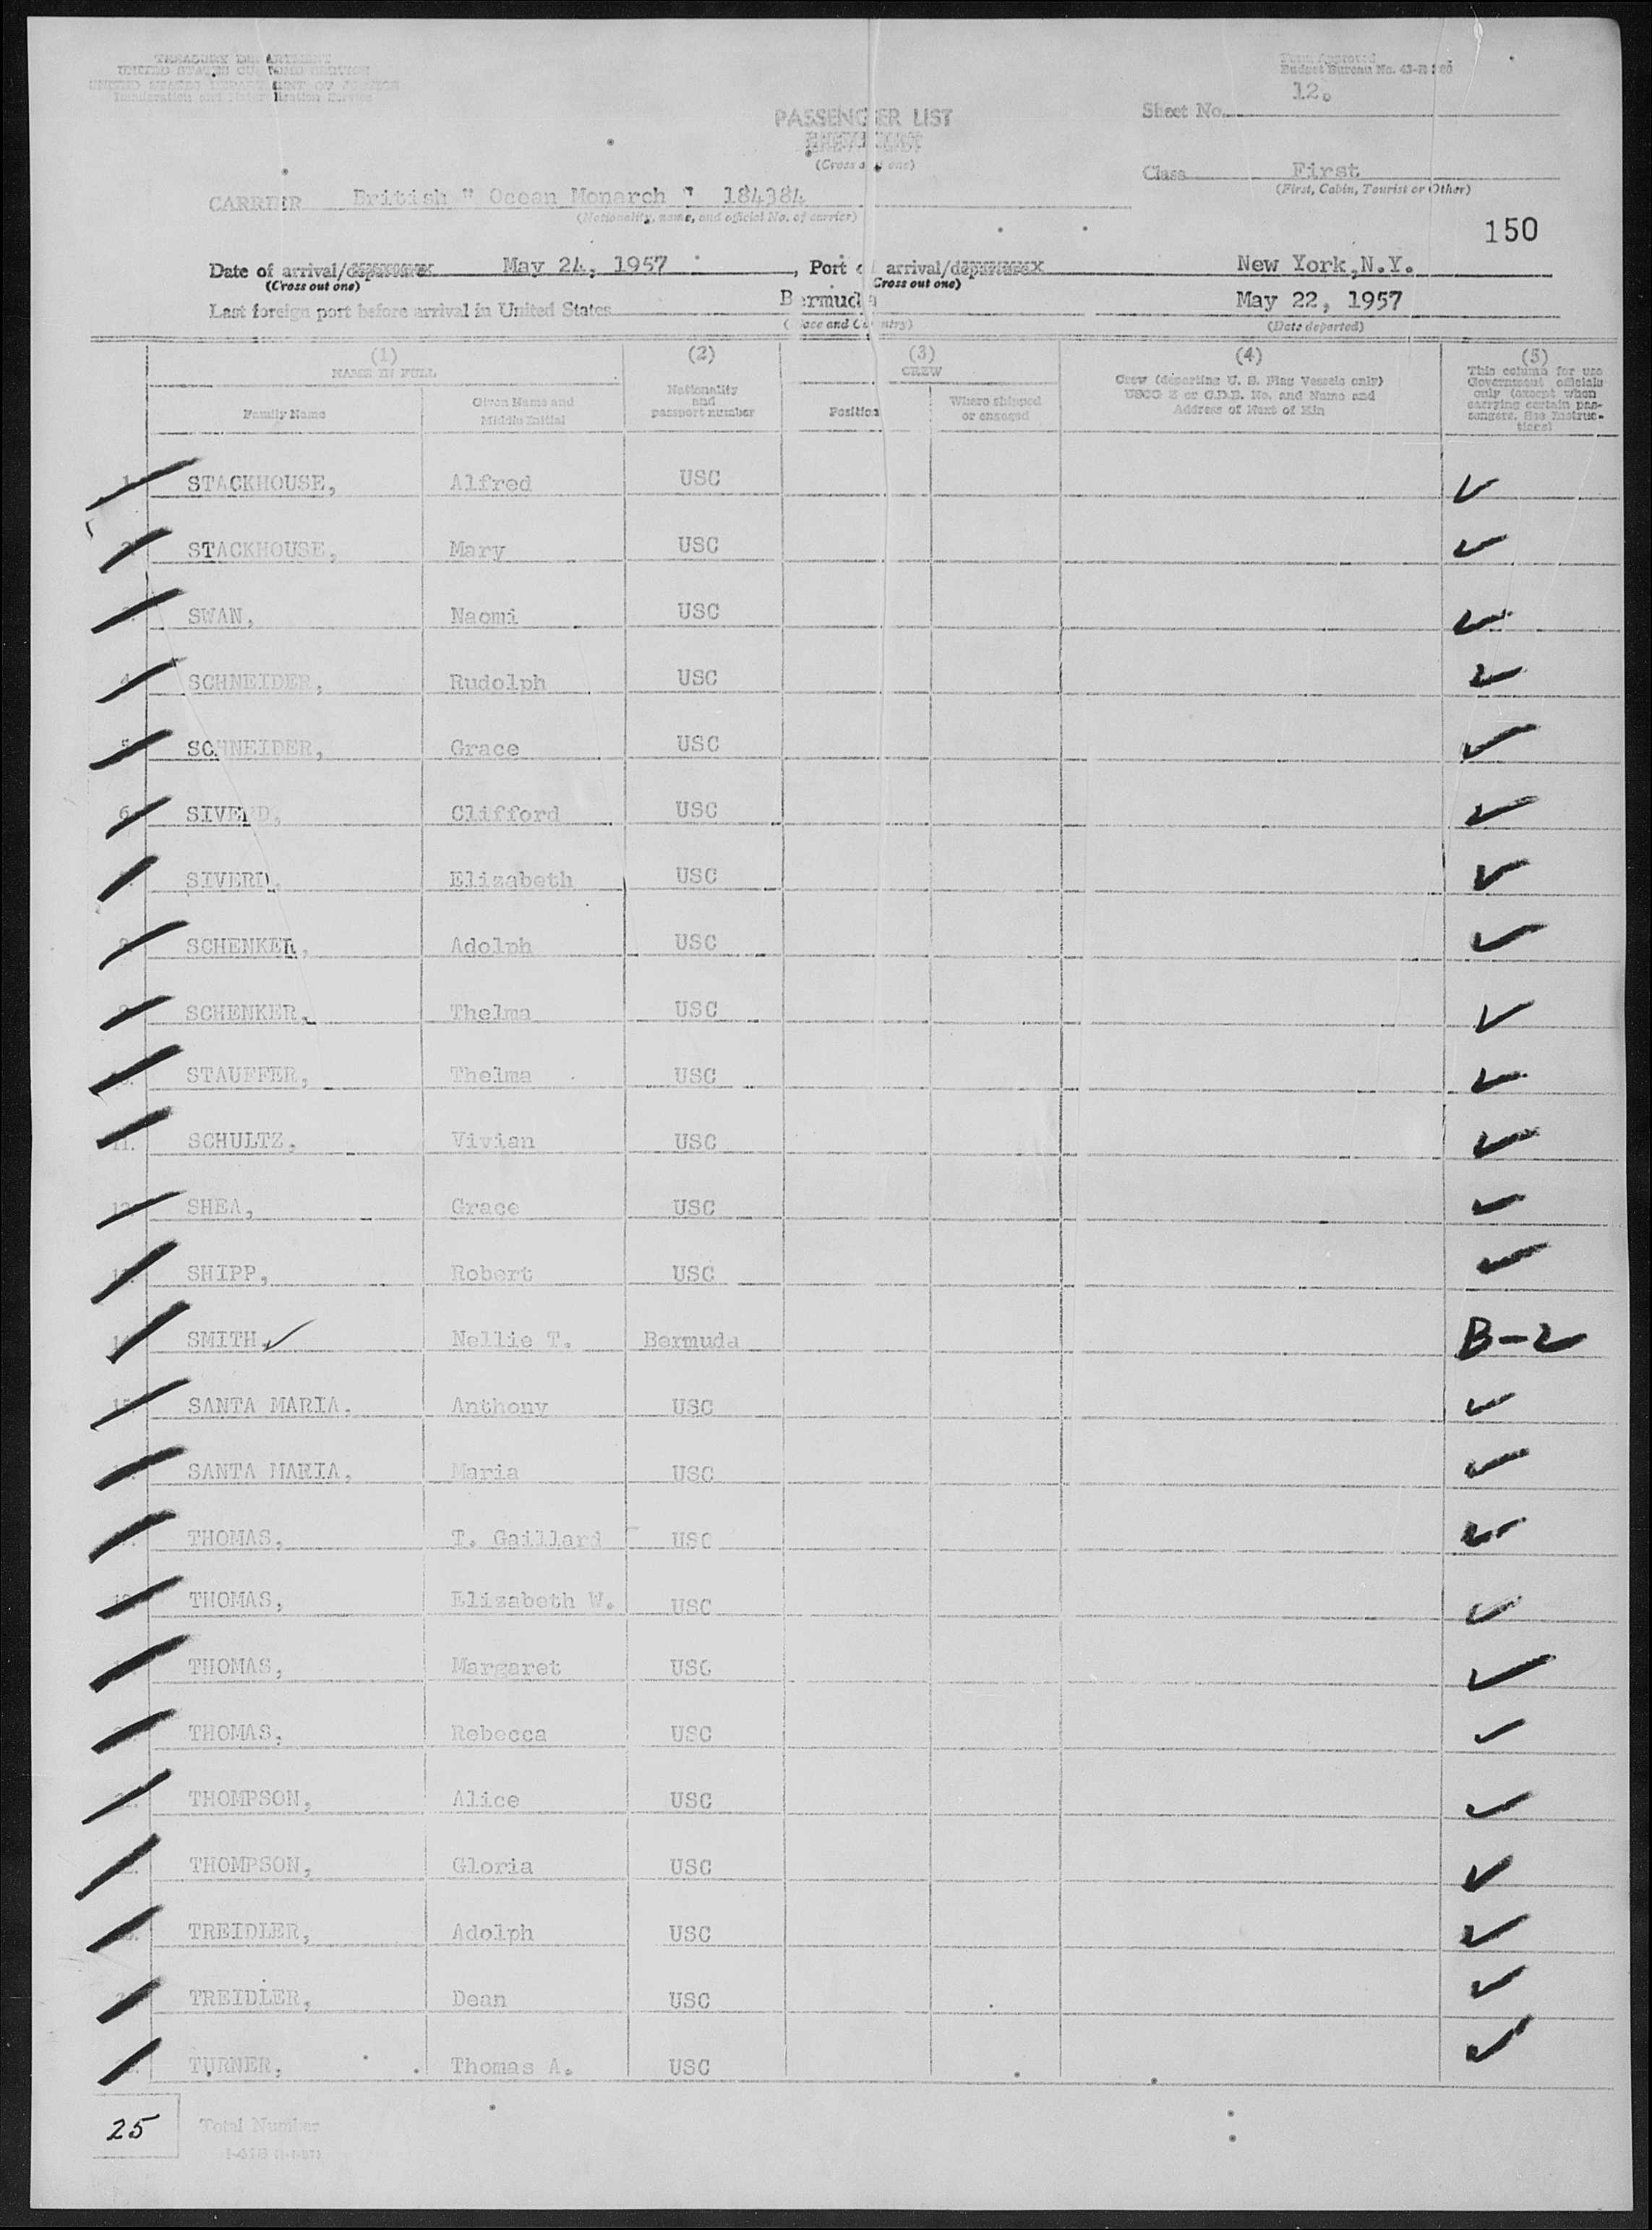 TREASURY DEPARTMENT
UNITED STATES CUSTOMS SERVICE
UNITED STATES DEPARTMENT OF JUSTICE
Immigration and Naturalization Service
Form Approved
Budget Bureau No. 43-R
PASSENGER LIST
(Cross out one)
Sheet No. 12.
Class First
(First, Cabin, Tourist or Other)
CARRIER British " Ocean Monarch " 184384
(Nationality, name, and official No. of carrier)
150
Date of arrival/departure May 24, 1957, Port of arrival/departure New York,N.Y.
(Cross out one) (Cross out one)
Last foreign port before arrival in United States Bermuda May 22, 1957
(Place and Country) (Date departed)
(1) (2) (3) (4) (5)
NAME IN FULL
Family Name
Given Name and Middle Initial
Nationality and passport number
CREW
Position
Where shipped or engaged
Crew (departing U. S. Flag Vessels only)
USCG Z or C.D.B. No. and Name and
Address of Next of Kin
This column for use
Government officials
only (except when
carrying certain pas-
sengers. See Instruc-
tions)
1. STACKHOUSE, Alfred USC ✓
2. STACKHOUSE, Mary USC ✓
SWAN, Naomi USC ✓
4. SCHNEIDER, Rudolph USC ✓
5. SCHNEIDER, Grace USC ✓
6. SIVERD, Clifford USC ✓
SIVERD, Elizabeth USC ✓
8. SCHENKER, Adolph USC ✓
9. SCHENKER, Thelma USC ✓
10. STAUFFER, Thelma USC ✓
11. SCHULTZ, Vivian USC ✓
12. SHEA, Grace USC ✓
13. SHIPP, Robert USC ✓
14. SMITH, ✓ Nellie T. Bermuda B-2
15. SANTA MARIA, Anthony USC ✓
SANTA MARIA, Maria USC ✓
THOMAS, T. Gaillard USC ✓
18. THOMAS, Elizabeth W. USC ✓
THOMAS, Margaret USC ✓
THOMAS, Rebecca USC ✓
THOMPSON, Alice USC ✓
THOMPSON, Gloria USC ✓
TREIDLER, Adolph USC ✓
TREIDLER, Dean USC ✓
TURNER, Thomas A. USC ✓
25 Total Number
I-418